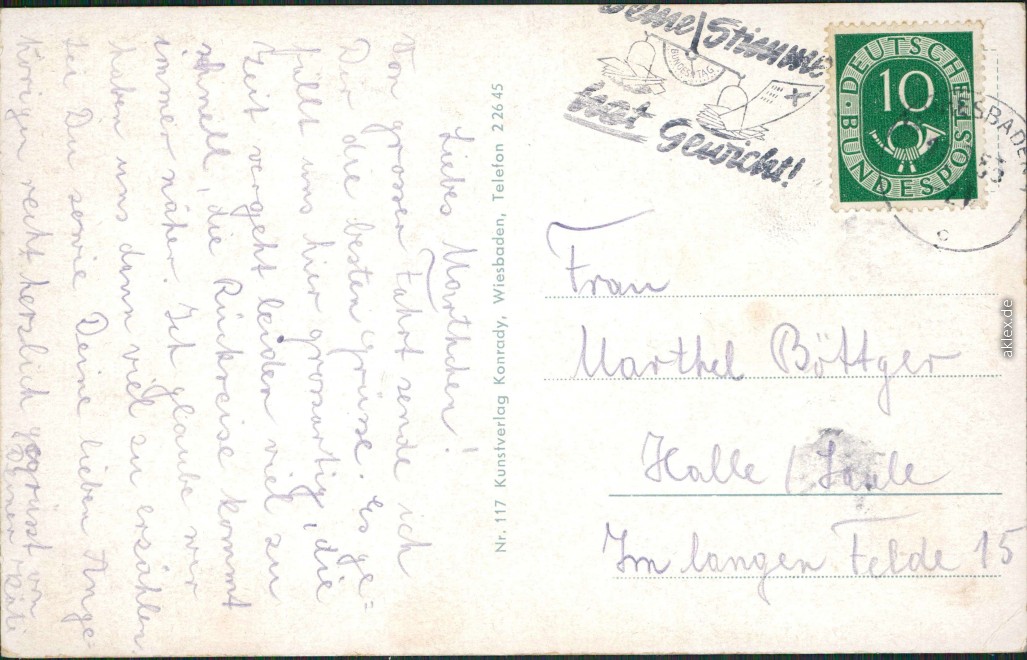 Liebes Marthchen!
Von grosser Fahrt sende ich
Dir die besten Grüsse. Es ge=
fällt uns hier grossartig, die
Zeit vergeht leider viel zu
schnell, die Rückreise kommt
immer näher. Ich glaube wir
haben uns dann viel zu erzählen.
Sei Du sowie Deine lieben Ange=
hörigen recht herzlich gegrüsst von
Deiner
Nr. 117 Kunstverlag Konrady, Wiesbaden, Telefon 2 26 45
Deine Stimme
BUNDESTAG
hat Gewicht!
DEUTSCHE
BUNDESPOST
10
WIESBADEN
53
21
c
Frau
Marthel Böttger
Halle / Saale
Im langen Felde 15
aklex.de